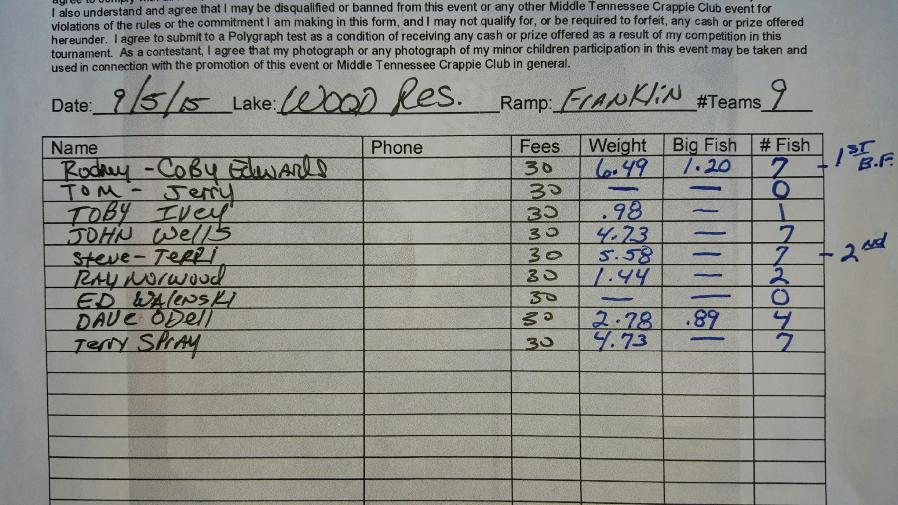 I also understand and agree that I may be disqualified or banned from this event or any other Middle Tennessee Crappie Club event for
violations of the rules or the commitment I am making in this form, and I may not qualify for, or be required to forfeit, any cash or prize offered
hereunder. I agree to submit to a Polygraph test as a condition of receiving any cash or prize offered as a result of my competition in this
tournament. As a contestant, I agree that my photograph or any photograph of my minor children participation in this event may be taken and
used in connection with the promotion of this event or Middle Tennessee Crappie Club in general.
Date: 9/5/15 Lake: WOOD Res. Ramp: FranKlin #Teams 9
Name Phone Fees Weight Big Fish # Fish
Rodney - CoBy Edwards 30 6.49 1.20 7 - 1ST B.F.
Tom - Jerry 30 — — 0
TOBY Ivey 30 .98 — 1
JOHN Wells 30 4.73 — 7
Steve - Terri 30 5.58 — 7 - 2nd
RAY Norwood 30 1.44 — 2
ED WAlenski 30 — — 0
DAVe ODell 30 2.78 .89 4
Terry SPrAY 30 4.73 — 7